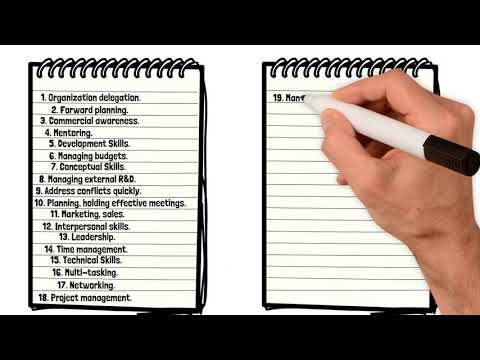 1. Organization delegation.
2. Forward planning.
3. Commercial awareness.
4. Mentoring.
5. Development Skills.
6. Managing budgets.
7. Conceptual Skills.
8. Managing external R&D.
9. Address conflicts quickly.
10. Planning, holding effective meetings.
11. Marketing, sales.
12. Interpersonal skills.
13. Leadership.
14. Time management.
15. Technical Skills.
16. Multi-tasking.
17. Networking.
18. Project management.
19. Man